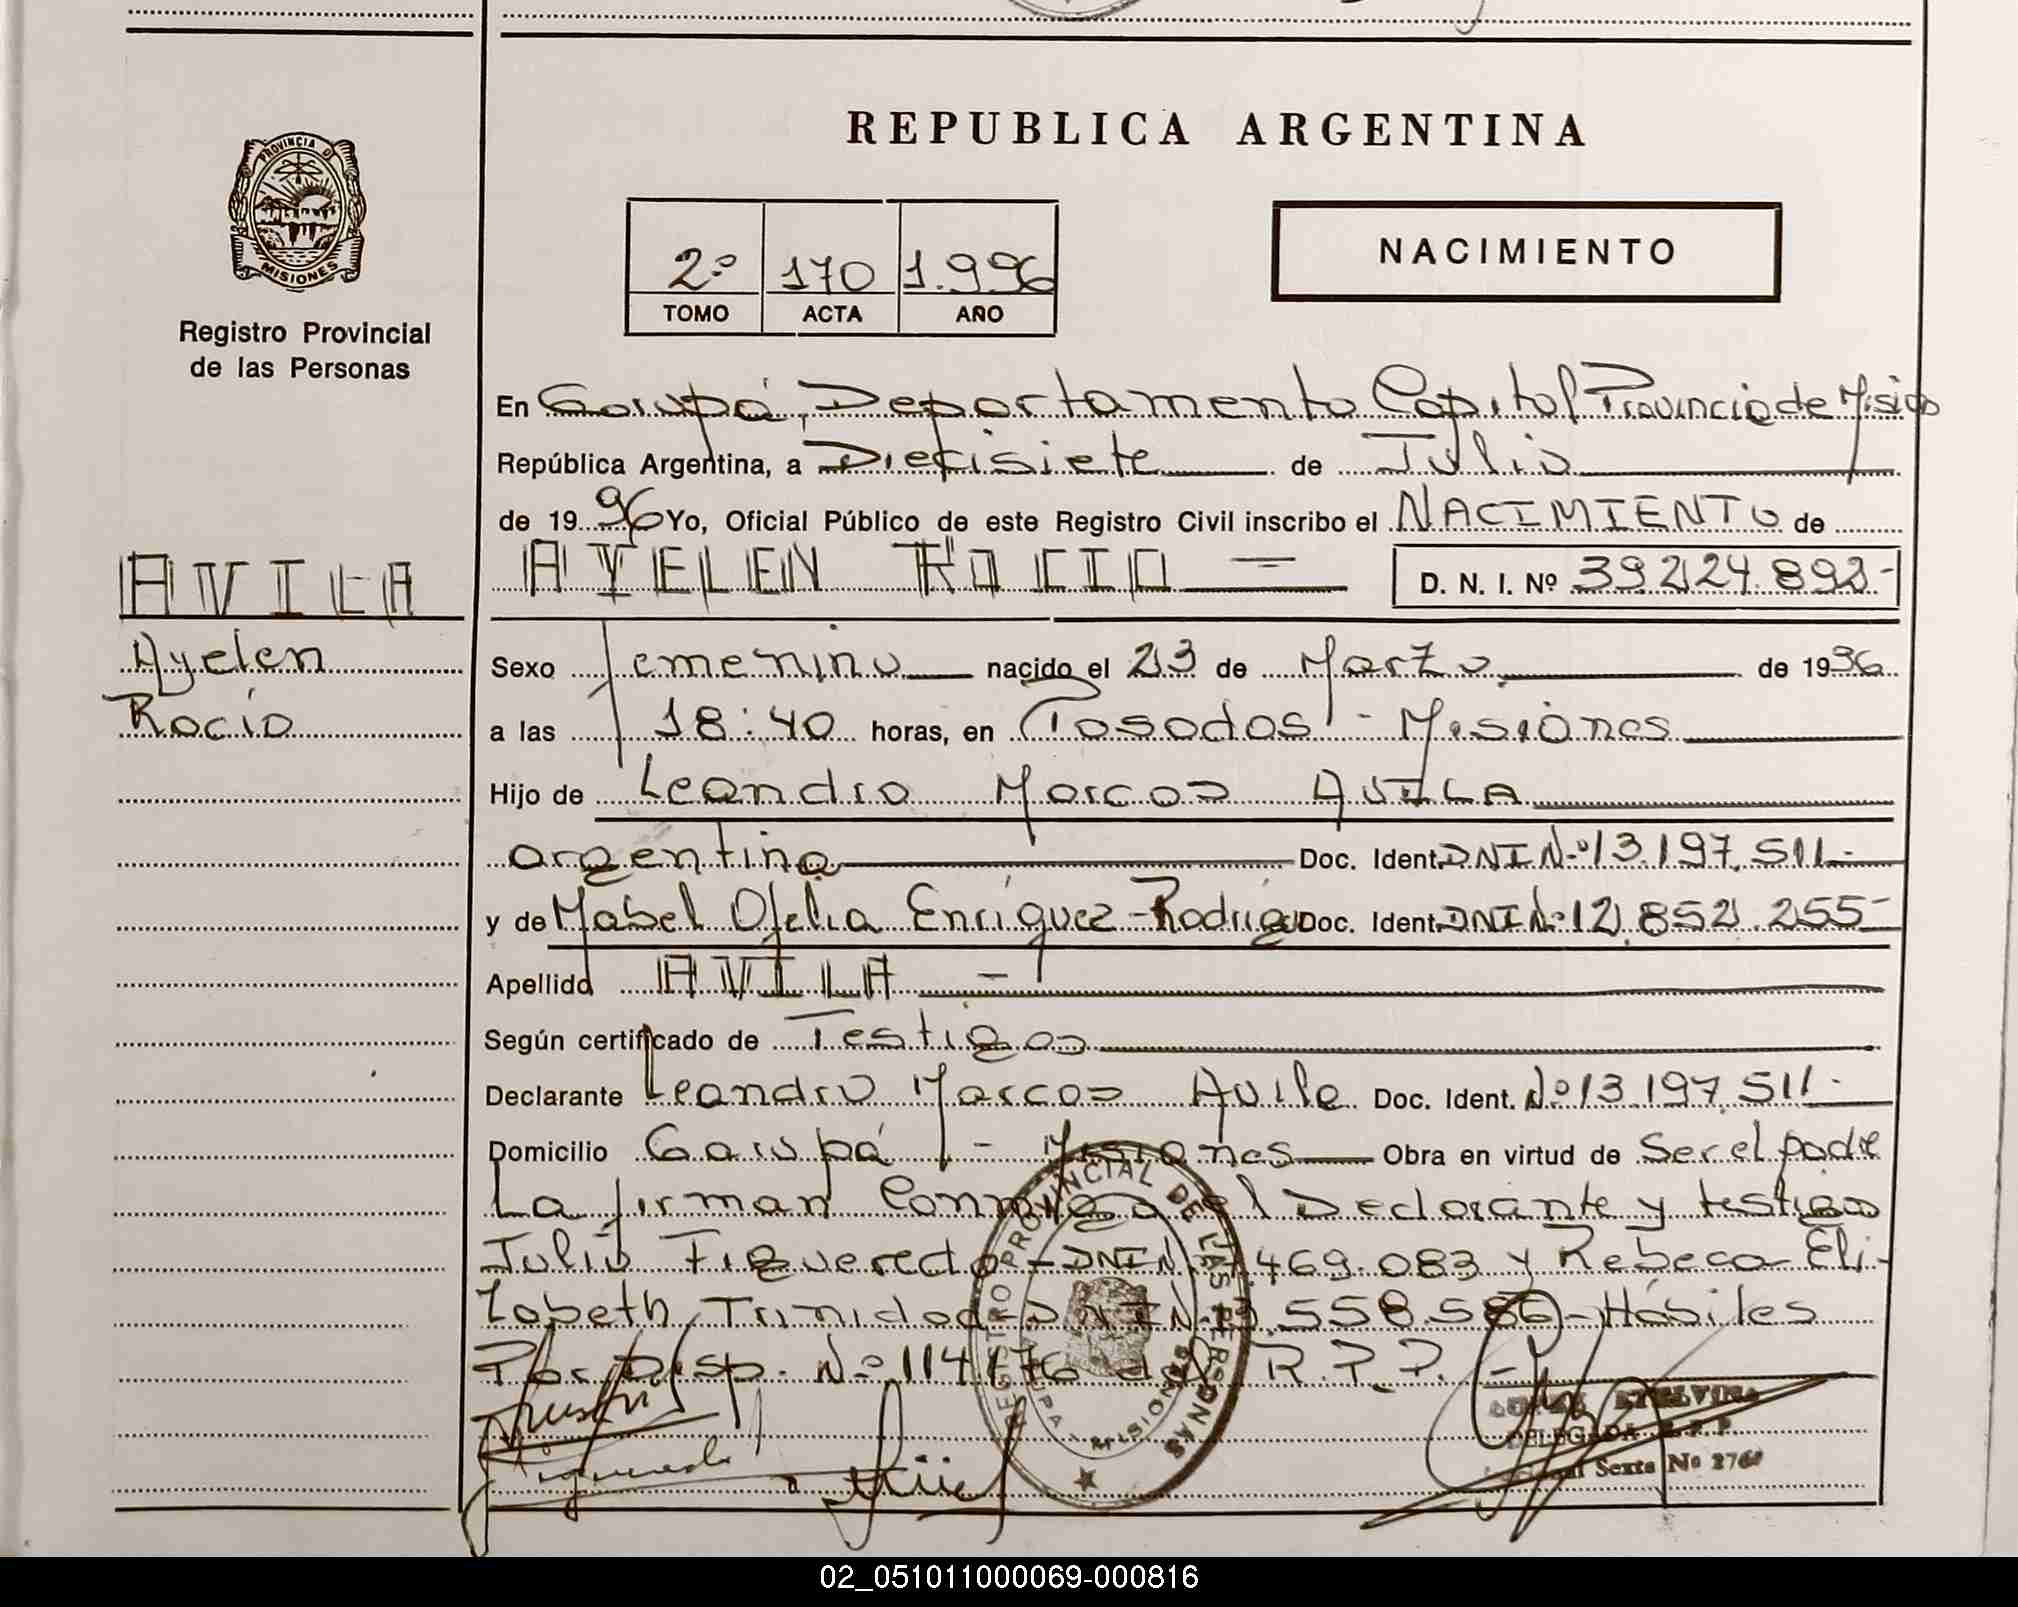 REPUBLICA ARGENTINA
PROVINCIA DE
MISIONES
Registro Provincial
de las Personas
2º 170 1.996
TOMO ACTA AÑO
NACIMIENTO
En Garupá, Departamento Capital Provincia de Misiones
República Argentina, a Diecisiete de Julio
de 1996 Yo, Oficial Público de este Registro Civil inscribo el NACIMIENTO de
AYELEN ROCIO = D. N. I. Nº 39.224.892-
AVILA
Ayelen
Rocío
Sexo femenino nacido el 23 de Marzo de 1996
a las 18:40 horas, en Posadas - Misiones
Hijo de Leandro Marcos AVILA
argentina Doc. Ident. DNI Nº 13.197.511-
y de Mabel Ofelia Enríquez-Rodrig Doc. Ident. DNI Nº 12.852.255-
Apellido AVILA -
Según certificado de Testigos
Declarante Leandro Marcos Avila Doc. Ident. Nº 13.197.511-
Domicilio Garupá - Misiones Obra en virtud de Ser el padre
La firman Conmigo el Declarante y testigos
Julio Figueredo - DNI Nº 469.083 y Rebeca Eli-
zabeth Trinidad DNI Nº 558.586 - Hábiles
Por Disp. Nº 114/76 del R.P.P. -
REGISTRO PROVINCIAL DE LAS PERSONAS
ETELVINA
DELEGADA R.P.P.
Sexta Nº 276
02_051011000069-000816